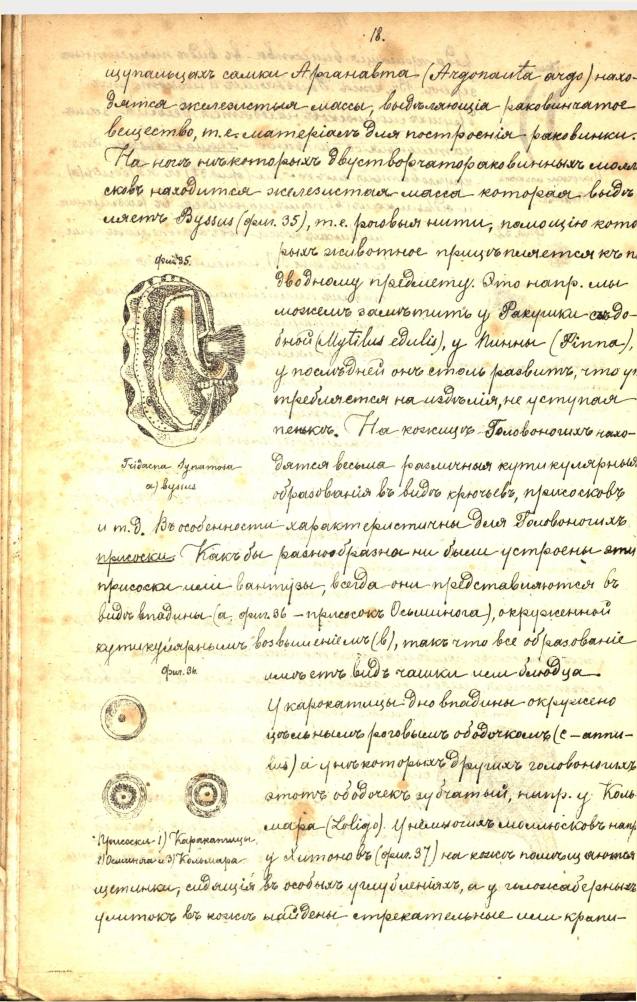 18.
щупальцахъ самки Арганавта (Argonauta argo) нахо-
дятся железистыя массы, выдѣляющія раковинчатое
вещество, т.е. матеріалъ для построенія раковинки.
На ногѣ нѣкоторыхъ двустворчатораковинныхъ молл
сковъ находится железистая масса которая выдѣ
ляетъ Byssus (фиг. 35), т.е. роговыя нити, помощію кото
рыхъ животное прицѣпляется къ п
дводному предмету. Это напр. мы
можемъ замѣтить у Ракушки съѣдо-
бной (Mytilus edulis), у Пинны (Pinna),
у послѣдней онъ столь развитъ, что у
требляется на издѣлія, не уступая
пенькѣ. На кожицѣ Головоногихъ нахо-
дятся весьма различныя кутикулярныя
образованія въ видѣ крючьевъ, присосковъ
фиг. 35.
Tridacna
a) byssus
и т.д. Въ особенности характеристичны для Головоногихъ
присоски. Какъ бы разнообразна ни были устроены эти
присоски или вантузы, всегда они представляются въ
видѣ впадины (а, фиг. 36 – присосокъ Осьминога), окруженной
кутикулярнымъ возвышеніемъ (в), такъ что все образованіе
имѣетъ видъ чашки или блюдца.
У каракатицы дно впадины окружено
цѣльнымъ роговымъ ободочкомъ (с –
а у нѣкоторыхъ другихъ головоногихъ
этотъ ободочекъ зубчатый, напр. у Коль
мара (Loligo). У немногихъ моллюсковъ напр
у Хитоновъ (фиг. 37) на кожѣ помѣщаются
фиг. 36.
Присоски 1) Каракатицы,
2) Осминога и 3) Кольмара
щетинки, сидящія въ особыхъ углубленіяхъ, а у голожаберныхъ
улитокъ въ кожѣ найдены стрекательные или крапи-